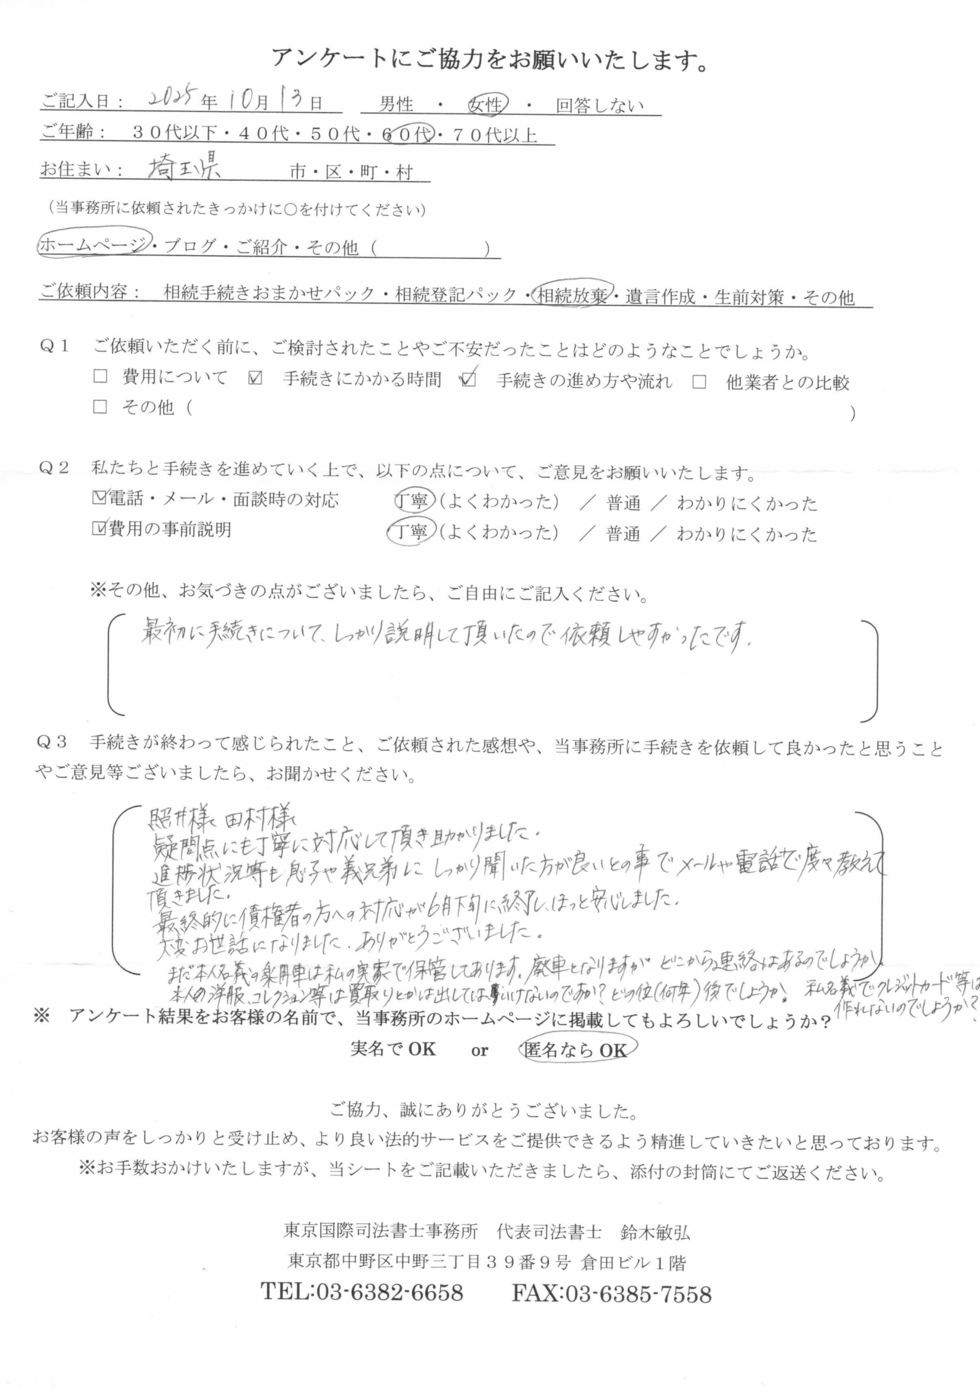 アンケートにご協力をお願いいたします。
ご記入日： 2025年 10月 13日　男性 ・ 女性 ・ 回答しない
ご年齢： 30代以下・40代・50代・60代・70代以上
お住まい： 埼玉県　市・区・町・村
（当事務所に依頼されたきっかけに○を付けてください）
ホームページ・ブログ・ご紹介・その他（　　　　　　）
ご依頼内容： 相続手続きおまかせパック・相続登記パック・相続放棄・遺言作成・生前対策・その他
Q1　ご依頼いただく前に、ご検討されたことやご不安だったことはどのようなことでしょうか。
□ 費用について ☑ 手続きにかかる時間 ☑ 手続きの進め方や流れ □ 他業者との比較
□ その他（　　　　　　）
Q2　私たちと手続きを進めていく上で、以下の点について、ご意見をお願いいたします。
☑電話・メール・面談時の対応　丁寧（よくわかった） ／ 普通 ／ わかりにくかった
☑費用の事前説明　丁寧（よくわかった） ／ 普通 ／ わかりにくかった
※その他、お気づきの点がございましたら、ご自由にご記入ください。
最初に手続きについて、しっかり説明して頂いたので依頼しやすかったです。
Q3　手続きが終わって感じられたこと、ご依頼された感想や、当事務所に手続きを依頼して良かったと思うこと
やご意見等ございましたら、お聞かせください。
照井様 田村様
疑問点にも丁寧に対応して頂き助かりました。
進捗状況等も息子や義兄弟にしっかり聞いた方が良いとの事でメールや電話で度々教えて
頂きました。
最終的に債権者の方への対応が6月下旬に終了し、ほっと安心しました。
大変お世話になりました。ありがとうございました。
まだ本人名義の乗用車は私の実家で保管してあります。廃車となりますが どこから連絡はあるのでしょうか。
本人の洋服、コレクション等は買取りとかは出してはいけないのですか？どの位（何年）後でしょうか。 私名義でクレジットカード等は
作れないのでしょうか？
※　アンケート結果をお客様の名前で、当事務所のホームページに掲載してもよろしいでしょうか？
実名でOK　or　匿名ならOK
ご協力、誠にありがとうございました。
お客様の声をしっかりと受け止め、より良い法的サービスをご提供できるよう精進していきたいと思っております。
※お手数おかけいたしますが、当シートをご記載いただきましたら、添付の封筒にてご返送ください。
東京国際司法書士事務所　代表司法書士　鈴木敏弘
東京都中野区中野三丁目39番9号 倉田ビル1階
TEL:03-6382-6658　FAX:03-6385-7558